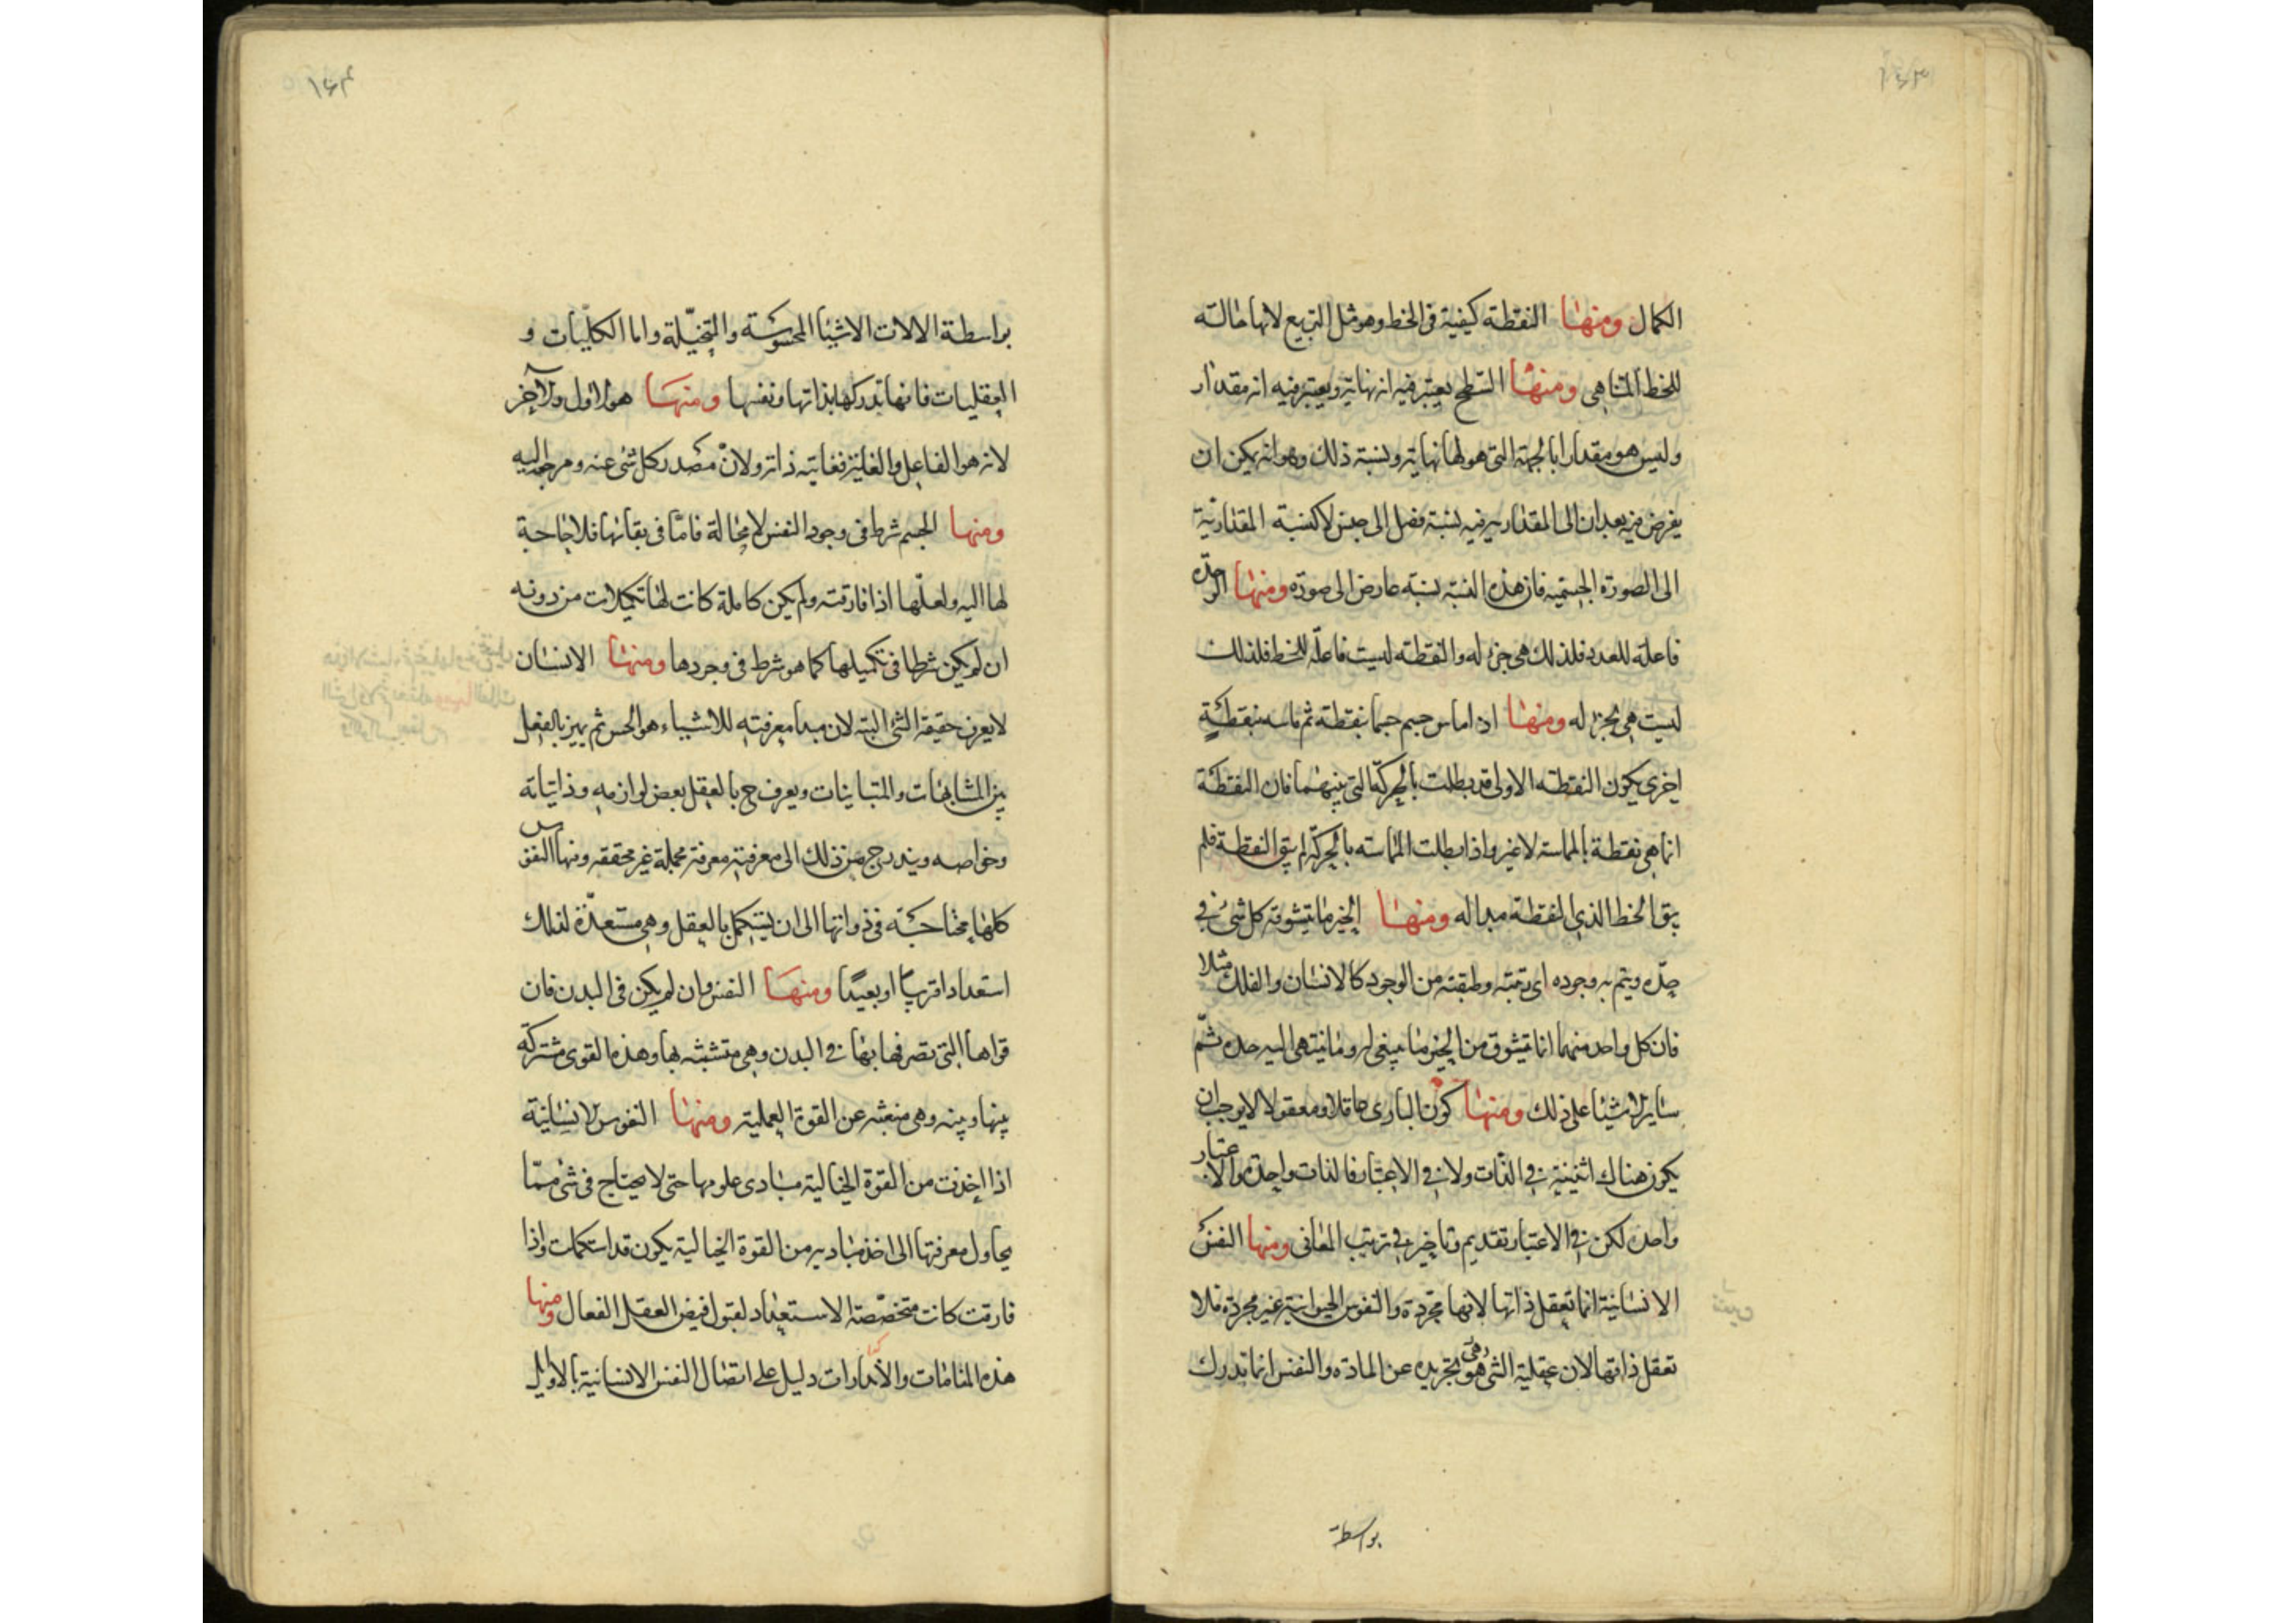 ١٤٣
الكمال ومنها النقطة كيفية فى الخط وهو مثل التربيع لانها حالة
للخط المتناهى ومنها السطح يعتبر فيه انه نهاية ويعتبر فيه انه مقدار
وليس هو مقدارا بالجهة التى هو لها نهاية ونسبة ذلك وهو انه يمكن ان
يفرض فيه بعدان الى المقدارية فيه نسبة فصل الى جنس لا كنسبة المقدارية
الى الصورة الجسمية فان هذه النسبة نسبة عارض الى صورة ومنها الوحدة
فاعلة للعدد فلذلك هى جزء له والنقطة ليست فاعلة للخط فلذلك
ليست هى بجزء له ومنها اذا ماس جسم جسما بنقطة ثم ماسه بنقطة
اخرى يكون النقطة الاولى قد بطلت بالحركة التى بينهما فان النقطة
انما هى نقطة بالمماسة لا غير واذا بطلت المماسة بالحركة لم يبق النقطة فلم
يبق الخط الذى النقطة مبدا له ومنها الخير ما يتشوقه كل شئ فى
حده ويتم به وجوده اى رتبته وطبقته من الوجود كالانسان والفلك مثلا
فان كل واحد منهما انما يتشوق من الخير ما ينبغى له وما ينتهى اليه حده ثم
ساير الاشيا على ذلك ومنها كون البارى عاقلا ومعقولا لا يوجب ان
يكون هناك اثنينية فى الذات ولا فى الاعتبار فالذات واحدة والاعتبار
واحد لكن فى الاعتبار تقديم وتاخير فى ترتيب المعانى ومنها النفس
الانسانية انما تعقل ذاتها لانها مجردة والنفوس الحيوانية غير مجردة فلا
تعقل ذاتها لان عقلية الشئ هو تجريده عن المادة والنفس انما تدرك
بواسطة
١٤٤
بواسطة الالات الاشيا المحسوسة والمتخيلة واما الكليات و
العقليات فانها تدركها بذاتها ونفسها ومنها هو الاول والآخر
لانه هو الفاعل والغاية فغايته ذاته ولان مصدر كل شئ عنه ومرجعه اليه
ومنها الجسم شرط فى وجود النفس لا محالة فاما فى بقائها فلا حاجة
لها اليه ولعلها اذا فارقته ولم يكن كاملة كانت لها تكميلات من دونه
ان لم يكن شرطا فى تكميلها كما هو شرط فى وجودها ومنها الانسان
لا يعرف حقيقة الشئ البتة لان مبدا معرفته للاشياء هو الحس ثم يميز بالعقل
بين المشابهات والمتباينات ويعرف ح بالعقل بعض لوازمه وذاتياته
وخواصه ويندرج من ذلك الى معرفة معرفة مجملة غير محققه ومنها النفس
كلها محتاجة فى ذواتها الى ان يستكمل بالعقل وهى مستعدة لذلك
استعدادا قريبا او بعيدا ومنها النفس وان لم يكن فى البدن فان
قواها التى تصرفها بها فى البدن وهى متشبثه بها وهذه القوى مشتركة
بينها وبينه وهى منبعثه عن القوة العملية ومنها النفوس الانسانية
اذا اخذت من القوة الخيالية مبادى علومها حتى لا يحتاج فى شئ مما
يحاول معرفتها الى اخذ مباديه من القوة الخيالية يكون قد استكملت واذا
فارقت كانت متخصصة الاستعداد لقبول فيض العقل الفعال ومنها
هذه المنامات والانذارات دليل على اتصال النفس الانسانية بالاوايل